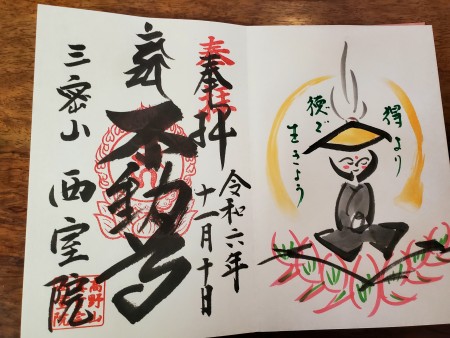 奉拝
令和六年
十一月十日
不動尊
三密山
西室院
高野山
得より
徳で
生きよう